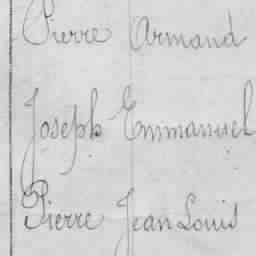 Pierre Armand
Joseph Emmanuel
Pierre Jean Louis